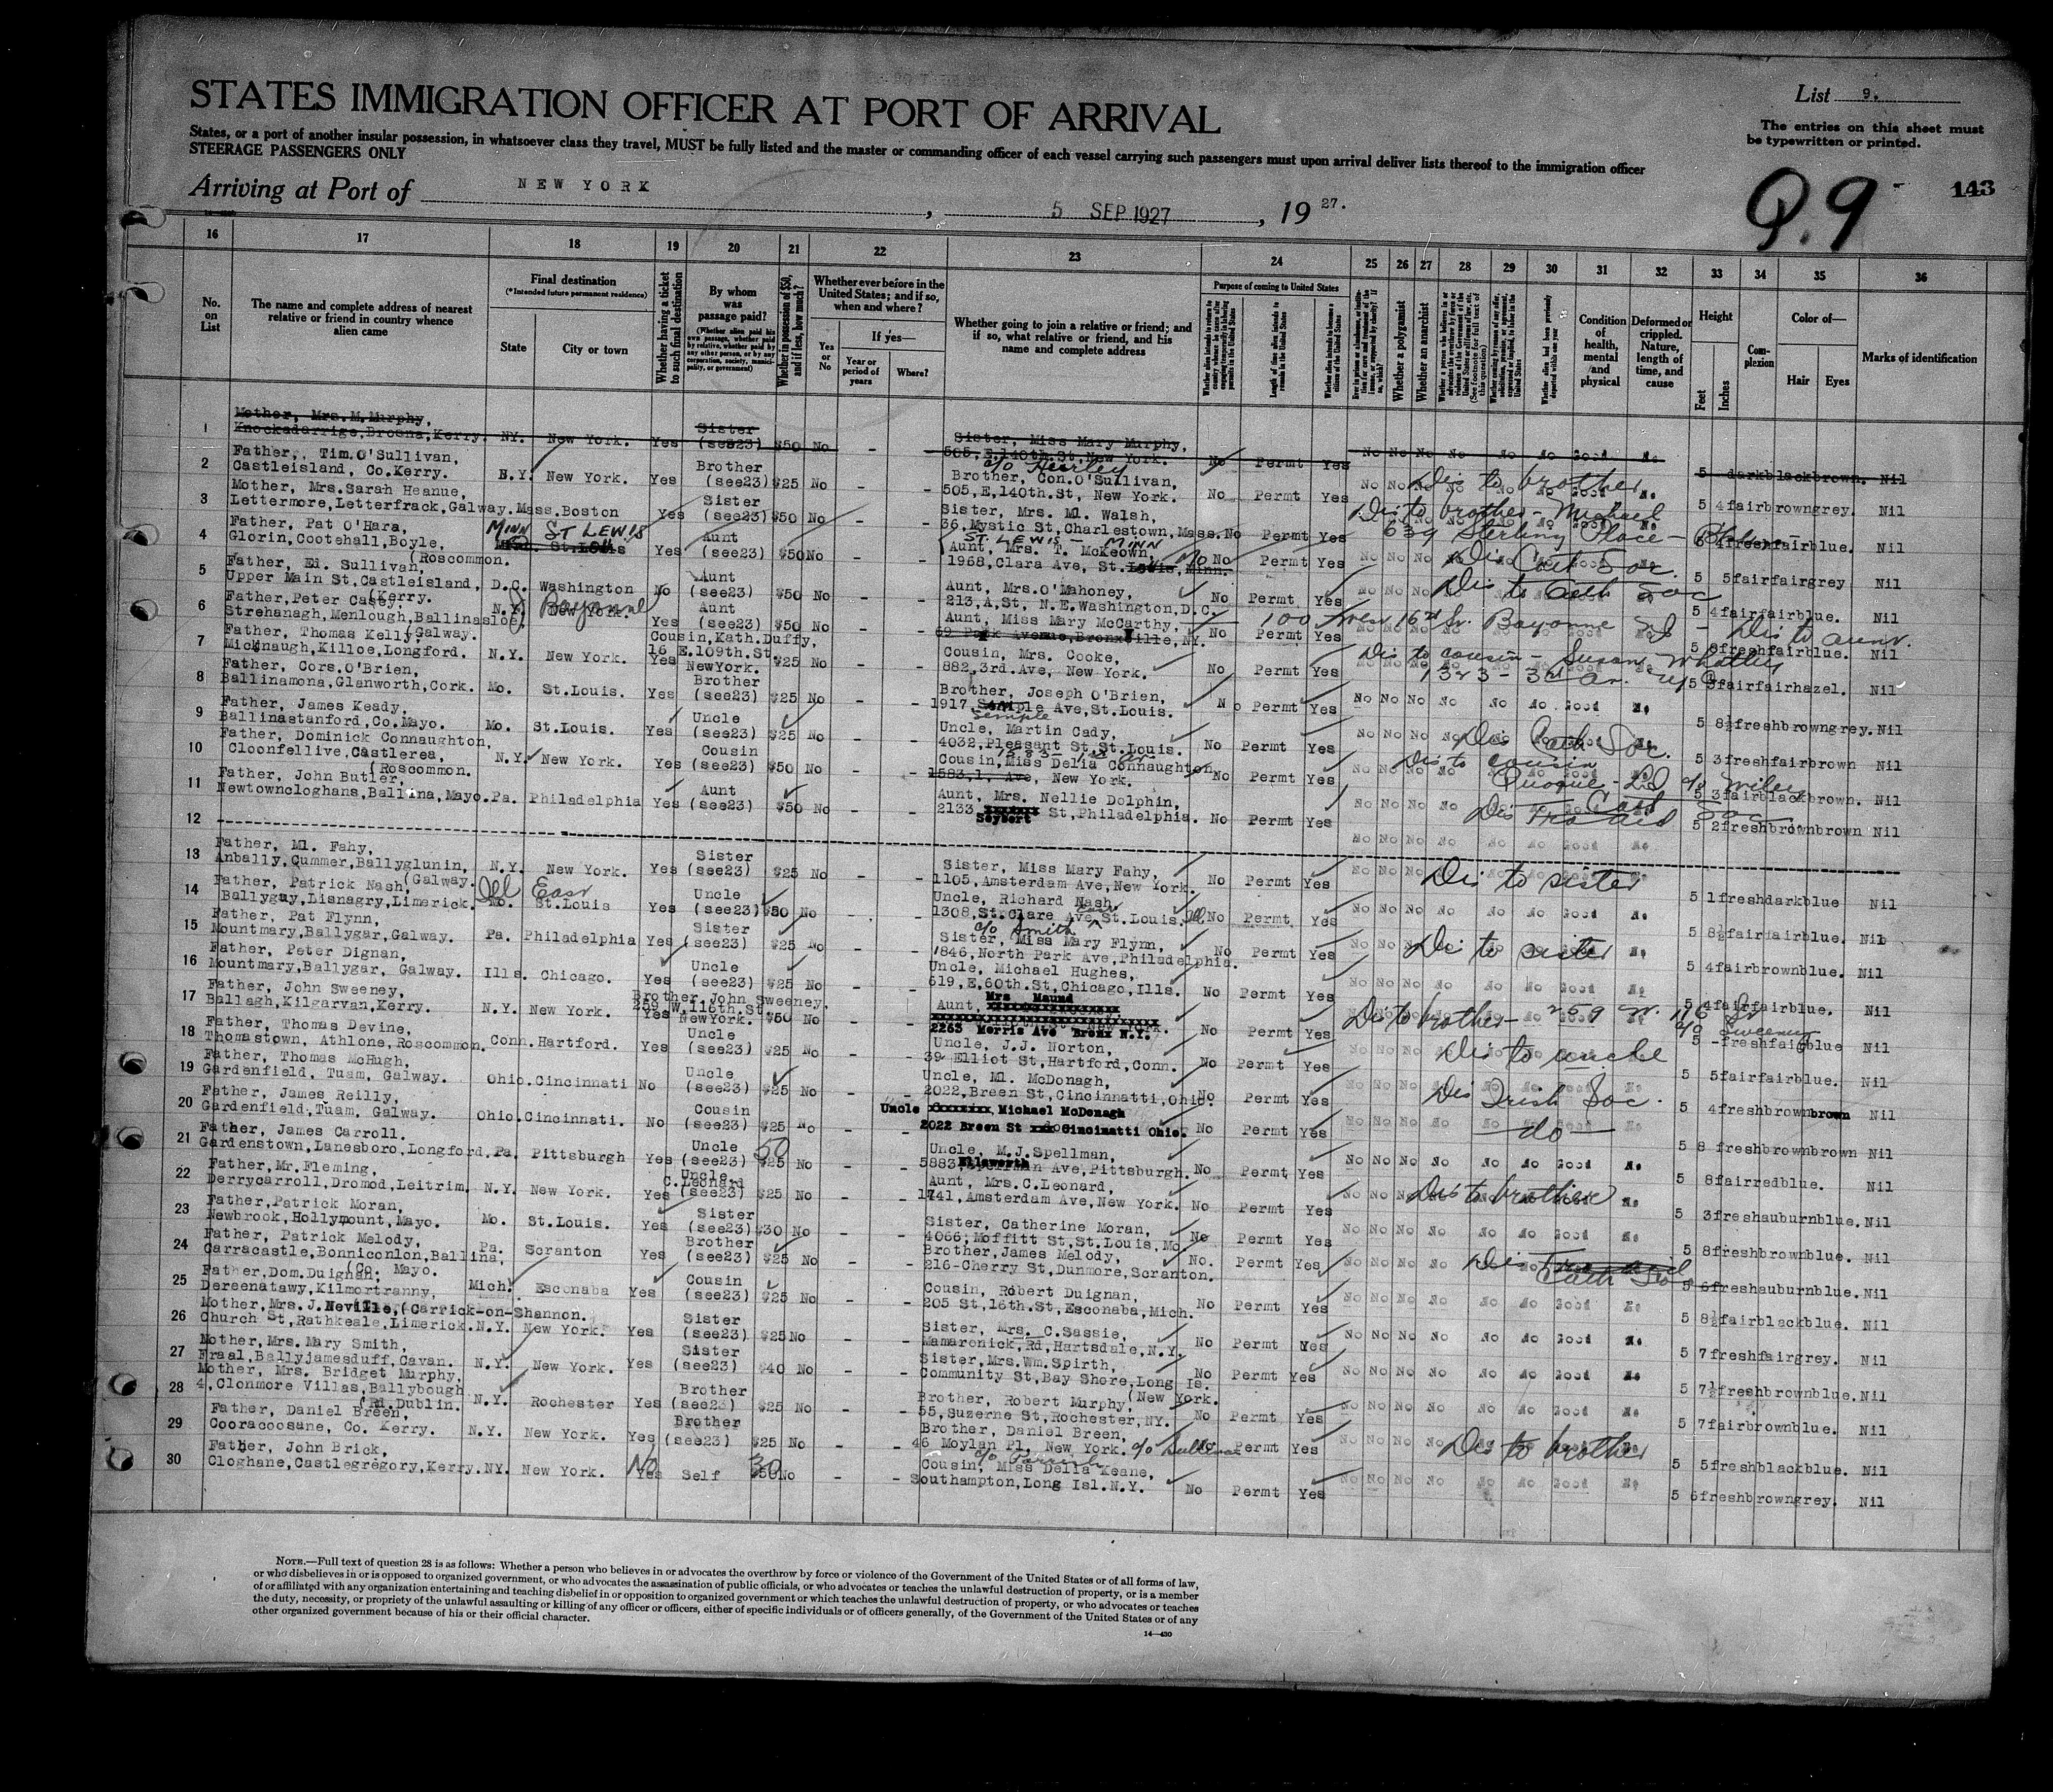 STATES IMMIGRATION OFFICER AT PORT OF ARRIVAL
List 9.
The entries on this sheet must
be typewritten or printed.
States, or a port of another insular possession, in whatsoever class they travel, MUST be fully listed and the master or commanding officer of each vessel carrying such passengers must upon arrival deliver lists thereof to the immigration officer
STEERAGE PASSENGERS ONLY
Arriving at Port of NEW YORK, 5 SEP 1927, 19 27.
Q.9 143
16 17 18 19 20 21 22 23 24 25 26 27 28 29 30 31 32 33 34 35 36
No. on List
The name and complete address of nearest
relative or friend in country whence
alien came
Final destination
(*Intended future permanent residence)
State City or town
Whether having a ticket to such final destination
By whom was passage paid?
(Whether alien paid his own passage, whether paid by relative, whether paid by any other person, or by any corporation, society, municipality, or government)
Whether in possession of $50, and if less, how much?
Whether ever before in the United States; and if so, when and where?
Yes or No
If yes—
Year or period of years Where?
Whether going to join a relative or friend; and
if so, what relative or friend, and his
name and complete address
Purpose of coming to United States
Whether a polygamist
Whether an anarchist
Condition of health, mental and physical
Deformed or crippled. Nature, length of time, and cause
Height
Feet Inches
Complexion
Color of—
Hair Eyes
Marks of identification
1 Mother, Mrs.M.Murphy,
Knockadarrige,Brosna,Kerry. NY. New York. Yes Sister (see23) $50 No - - Sister, Miss Mary Murphy,
505,E.140th.St,New York. No Permt Yes No No No No No No Good No 5 dark black brown. Nil
2 Father,, Tim.O'Sullivan,
Castleisland, Co.Kerry. N.Y. New York. Yes Brother (see23) $25 No - - c/o Hearley
Brother, Con.O'Sullivan,
505,E.140th.St, New York. No Permt Yes Dis to brother 5 4 fair brown grey. Nil
3 Mother, Mrs.Sarah Heanue,
Lettermore,Letterfrack,Galway. Mass. Boston Yes Sister (see23) $50 No - - Sister, Mrs. Ml. Walsh,
36,Mystic St,Charlestown,Mass. No Permt Yes Dis to brother - Michael
639 Sterling Place - 5 4 fresh fair blue. Nil
4 Father, Pat O'Hara,
Glorin, Cootehall, Boyle,
(Roscommon. MINN ST LEWIS Minn. St.Louis Yes Aunt (see23) $50 No - - ST. LEWIS - MINN
Aunt, Mrs. T. McKeown,
1968,Clara Ave, St.Louis, Minn. Mo No Permt Yes Dis Cath Soc. 5 5 fair fair grey Nil
5 Father, El. Sullivan,
Upper Main St,Castleisland,
(Kerry. D.C. Washington No Aunt (see23) $50 No - - Aunt, Mrs.O'Mahoney,
213,A,St, N.E.Washington,D.C. No Permt Yes Dis to Cath Soc 5 4 fair fair blue. Nil
6 Father,Peter Casey,
Strehanagh, Menlough,Ballinasloe,
(Galway. N.Y. New York. Bayonne Yes Aunt (see23) $50 No - - Aunt, Miss Mary McCarthy,
69 Park Avenue,Bronxville, NY. No Permt Yes 100 West 16th St. Bayonne NJ - Dis to aunt. fresh fair blue. Nil
7 Father, Thomas Kelly,
Micknaugh,Killoe,Longford. N.Y. New York. Yes Cousin,Kath.Duffy,
16 E.109th.St
NewYork. $25 No - - Cousin, Mrs. Cooke,
882,3rd.Ave, New York. No Permt Yes Dis to cousin - Susan Whatley
1323 - 3rd av. NYC 5 fair fair hazel. Nil
8 Father, Cors.O'Brien,
Ballinamona,Glanworth,Cork. Mo. St.Louis. Yes Brother (see23) $25 No - - Brother, Joseph O'Brien,
1917 Semple Ave,St.Louis. No Permt Yes No No No No No No Good No 5 8½ fresh brown grey. Nil
9 Father, James Keady,
Ballinastanford,Co.Mayo. Mo. St.Louis. Yes Uncle (see23) $25 No - - Uncle, Martin Cady,
4032,Pleasant St.St.Louis. No Permt Yes Dis Cath Soc. 5 3 fresh fair brown Nil
10 Father, Dominick Connaughton,
Cloonfellive,Castlerea,
(Roscommon. N.Y. New York. Yes Cousin (see23) $50 No - - 1583 - 1st Av
Cousin,Miss Delia Connaughton
1583,1, Ave, New York. No Permt Yes Dis to cousin
Quogue - L.I. c/o Wiley 5 3 fair black brown. Nil
11 Father, John Butler,
Newtowncloghans,Ballina,Mayo. Pa. Philadelphia Yes Aunt (see23) $50 No - - Aunt, Mrs. Nellie Dolphin,
2133 Seybert St,Philadelphia. No Permt Yes Dis Trav Aid Cath Soc 5 2 fresh brown brown Nil
12
13 Father, Ml. Fahy,
Anbally,Cummer,Ballyglunin,
(Galway. N.Y. New York. Yes Sister (see23) $25 No - - Sister, Miss Mary Fahy,
1105,Amsterdam Ave,New York. No Permt Yes Dis to sister 5 1 fresh dark blue Nil
14 Father, Patrick Nash,
Ballyguy,Lisnagry,Limerick. Ill East Mo. St.Louis Yes Uncle (see23) $50 No - - Uncle, Richard Nash,
1308,St.Clare Ave East St.Louis. Ill No Permt Yes No No No No No No Good No 5 8½ fair fair blue. Nil
15 Father, Pat Flynn,
Mountmary,Ballygar,Galway. Pa. Philadelphia Yes Sister (see23) $25 No - - c/o Smith
Sister, Miss Mary Flynn,
1846,North Park Ave,Philadelphia. No Permt Yes Dis to sister 5 4 fair brown blue. Nil
16 Father, Peter Dignan,
Mountmary,Ballygar, Galway. Ills. Chicago. Yes Uncle (see23) $25 No - - Uncle, Michael Hughes,
619,E.60th.St,Chicago,Ills. No Permt Yes No No No No No No Good No 5 4 fair fair blue. Nil
17 Father, John Sweeney,
Ballagh,Kilgarvan,Kerry. N.Y. New York. Yes Brother,John Sweeney.
259 W.116th.St
NewYork. $50 No - - Mrs Maund
Aunt,
2263 Morris Ave Bronx N.Y. No Permt Yes Dis to brother - 259 W. 116 St
c/o Sweeney 5 - fresh fair blue Nil
18 Father, Thomas Devine,
Thomastown, Athlone,Roscommon. Conn. Hartford. Yes Uncle (see23) $25 No - - Uncle, J.J. Norton,
39 Elliot St,Hartford,Conn. No Permt Yes Dis to uncle 5 5 fair fair blue. Nil
19 Father, Thomas McHugh,
Gardenfield, Tuam, Galway. Ohio. Cincinnati No Uncle (see23) $25 No - - Uncle, Ml. McDonagh,
2022,Breen St,Cincinnatti,Ohio. No Permt Yes Dis Irish Soc. 5 4 fresh brown brown Nil
20 Father, James Reilly,
Gardenfield,Tuam, Galway. Ohio. Cincinnati. No Cousin (see23) $25 No - - Uncle Michael McDonagh
2022 Breen St Cincinatti Ohio. No Permt Yes - do - 5 8 fresh brown brown Nil
21 Father, James Carroll.
Gardenstown,Lanesboro,Longford. Pa. Pittsburgh Yes Uncle (see23) 50 $25 No - - Uncle, M.J.Spellman,
5883, Ellsworth Ave,Pittsburgh. No Permt Yes No No No No No No Good No 5 8 fair red blue. Nil
22 Father,Mr.Fleming,
Derrycarroll,Dromod,Leitrim. N.Y. New York. Yes Uncle,
C.Leonard (see23) $25 No - - Aunt, Mrs.C.Leonard,
1741,Amsterdam Ave,New York. No Permt Yes Dis to brother 5 3 fresh auburn blue. Nil
23 Father,Patrick Moran,
Newbrook,Hollymount,Mayo. Mo. St.Louis. Yes Sister (see23) $30 No - - Sister, Catherine Moran,
4066; Moffitt St,St.Louis,Mo. No Permt Yes No No No No No No Good No 5 8 fresh brown blue. Nil
24 Father, Patrick Melody,
Carracastle,Bonniconlon,Ballina,
(Co. Mayo. Pa. Scranton Yes Brother (see23) $25 No - - Brother,James Melody,
216-Cherry St,Dunmore,Scranton. No. Permt Yes Dis Trav Aid
Cath Soc 5 6 fresh auburn blue. Nil
25 Father,Dom.Duignan;
Dereenatawy,Kilmortranny,
(Carrick-on-Shannon. Mich. Esconaba Yes Cousin (see23) $25 No - - Cousin, Robert Duignan,
205 St,16th.St,Esconaba,Mich. No Permt Yes No No No No No No Good No 5 8½ fair black blue. Nil
26 Mother,Mrs.J.Neville,
Church St,Rathkeale,Limerick. N.Y. New York. Yes Sister (see23) $25 No - - Sister, Mrs. C.Sassie,
Mamaronick,Rd,Hartsdale,N.Y. No Permt Yes No No No No No No Good No 5 7 fresh fair grey. Nil
27 Mother,Mrs.Mary Smith,
Fraal,Ballyjamesduff,Cavan. N.Y. New York. Yes Sister (see23) $40 No - - Sister,Mrs.Wm.Spirth,
Community St,Bay Shore,Long Is.
(New York. No Permt Yes No No No No No No Good No 5 7½ fresh brown blue. Nil
28 Mother, Mrs. Bridget Murphy,
4,Clonmore Villas,Ballybough
(Rd.Dublin. N.Y. Rochester Yes Brother (see23) $25 No - - Brother, Robert Murphy,
55,Suzerne St,Rochester,NY. No Permt Yes No No No No No No Good No 5 7 fair brown blue. Nil
29 Father, Daniel Breen,
Cooracoosane, Co. Kerry. N.Y. New York. Yes Brother (see23) $25 No - - Brother, Daniel Breen,
46 Moylan Pl, New York. c/o Sullivan No Permt Yes Dis to brother 5 5 fresh black blue. Nil
30 Father, John Brick,
Cloghane,Castlegregory,Kerry. NY. New York. No Yes Self 30 $50 No - - Cousin, Miss Della Keane,
Southampton,Long Isl.N.Y. No Permt Yes No No No No No No Good No 5 6 fresh brown grey. Nil
NOTE.—Full text of question 28 is as follows: Whether a person who believes in or advocates the overthrow by force or violence of the Government of the United States or of all forms of law,
or who disbelieves in or is opposed to organized government, or who advocates the assassination of public officials, or who advocates or teaches the unlawful destruction of property, or is a member
of or affiliated with any organization entertaining and teaching disbelief in or opposition to organized government or which teaches the unlawful destruction of property, or who advocates or teaches
the duty, necessity, or propriety of the unlawful assaulting or killing of any officer or officers, either of specific individuals or of officers generally, of the Government of the United States or of any
other organized government because of his or their official character.
14—430